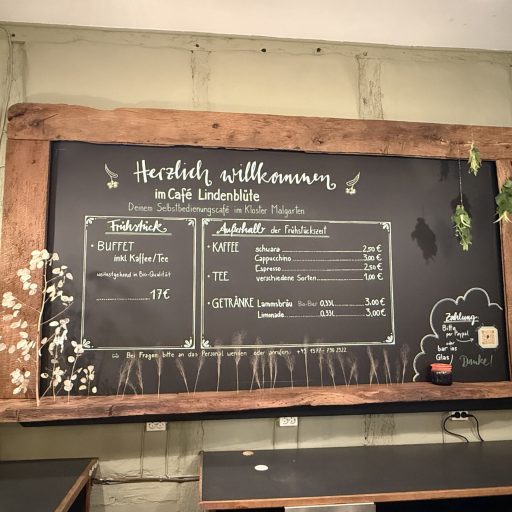 Herzlich willkommen
im Café Lindenblüte
Deinem Selbstbedienungscafé im Kloster Malgarten
Frühstück
• BUFFET
inkl. Kaffee/Tee
weitestgehend in Bio-Qualität
17€
Außerhalb der Frühstückszeit
• KAFFEE schwarz 2,50 €
Cappuccino 3,00 €
Espresso 2,50 €
• TEE verschiedene Sorten 1,00 €
• GETRÄNKE Lammsbräu Bio-Bier 0,33L 3,00 €
Limonade 0,33L 3,00 €
Bei Fragen bitte an das Personal wenden oder anrufen:
Zahlung:
Bitte
per Paypal
oder
bar ins
Glas!
Danke!